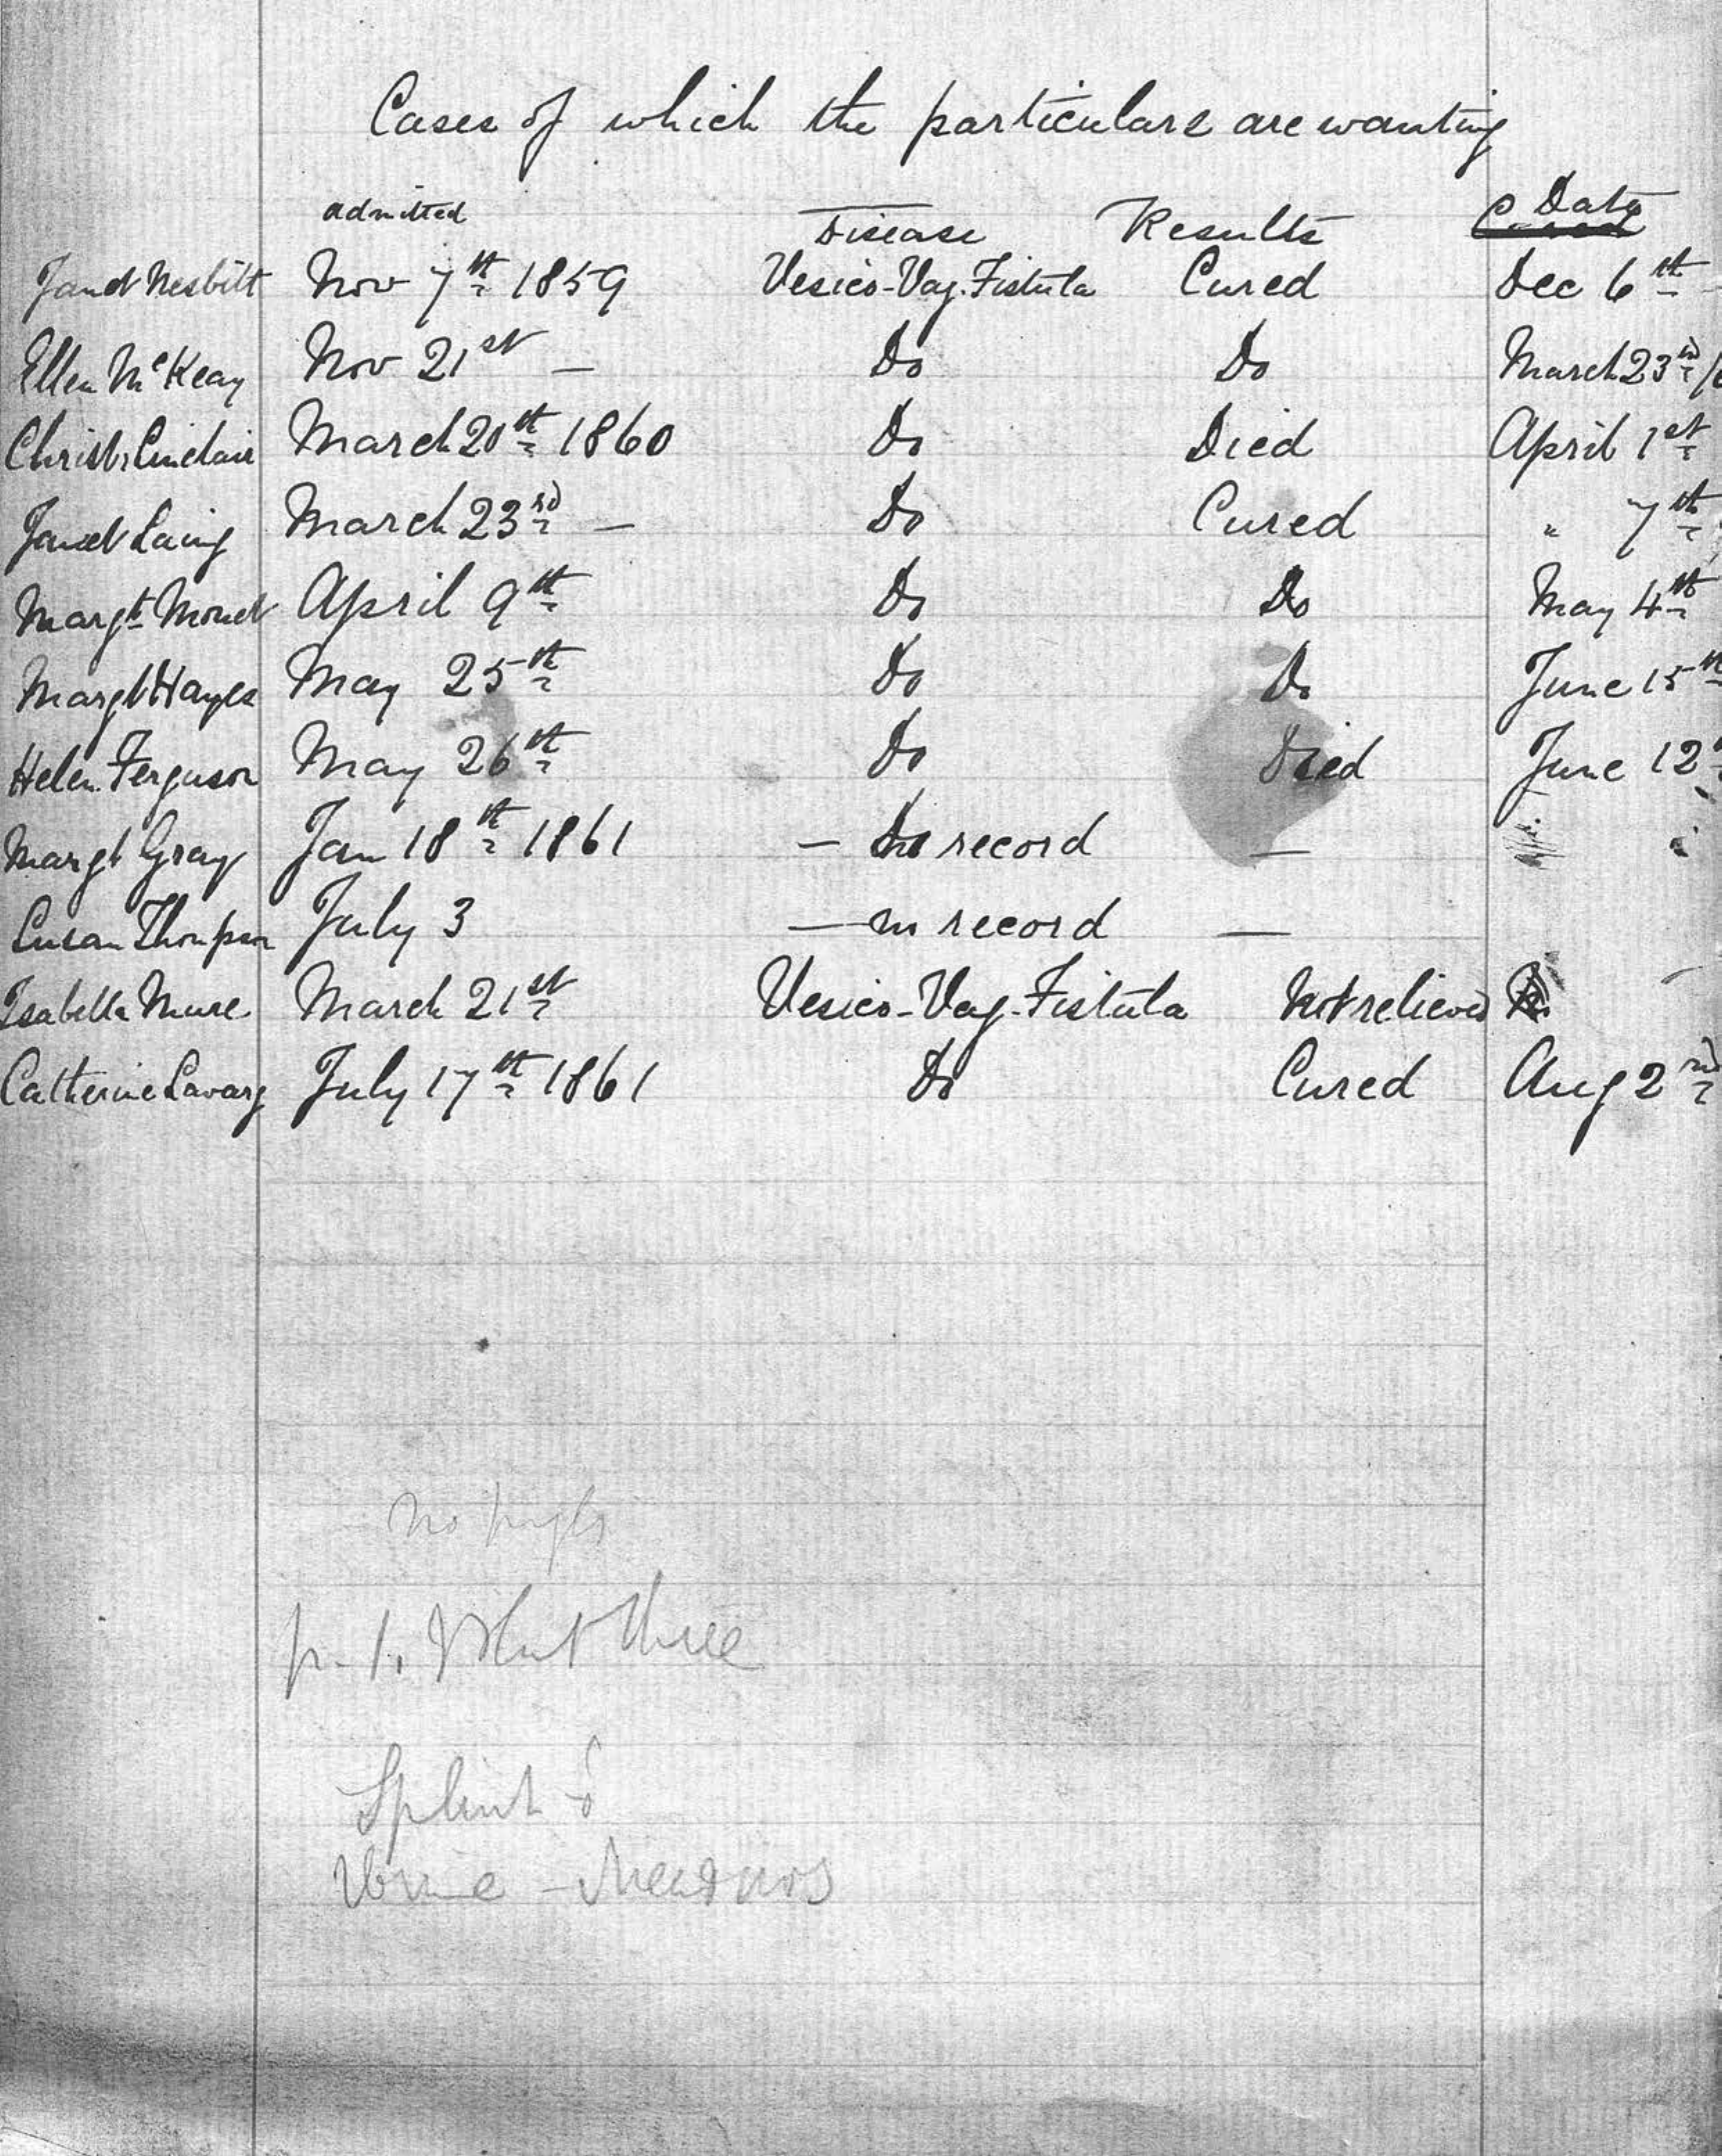 Cases of which the particulars are wanting
admitted Disease Results Date
Janet Nesbitt Nov 7th 1859 Vesico-Vag. Fistula Cured Dec 6th -
Ellen McKeay Nov 21st — Do Do March 23rd /6
Christ. Sinclair March 20th 1860 Do Died April 1st
Janet Laing March 23rd — Do Cured " 7th
Margt April 9th Do Do May 4th
Margt Hayes May 25th Do Do June 15th
Helen Ferguson May 26th Do Died June 12
Margt Gray Jan 18th 1861 — no record —
Susan Thompson July 3 — no record —
Isabella Mure March 21st Vesico-Vag-Fistula Not relieved
Catherine July 17th 1861 Do Cured Aug 2nd
No
p. 1. three
Splint